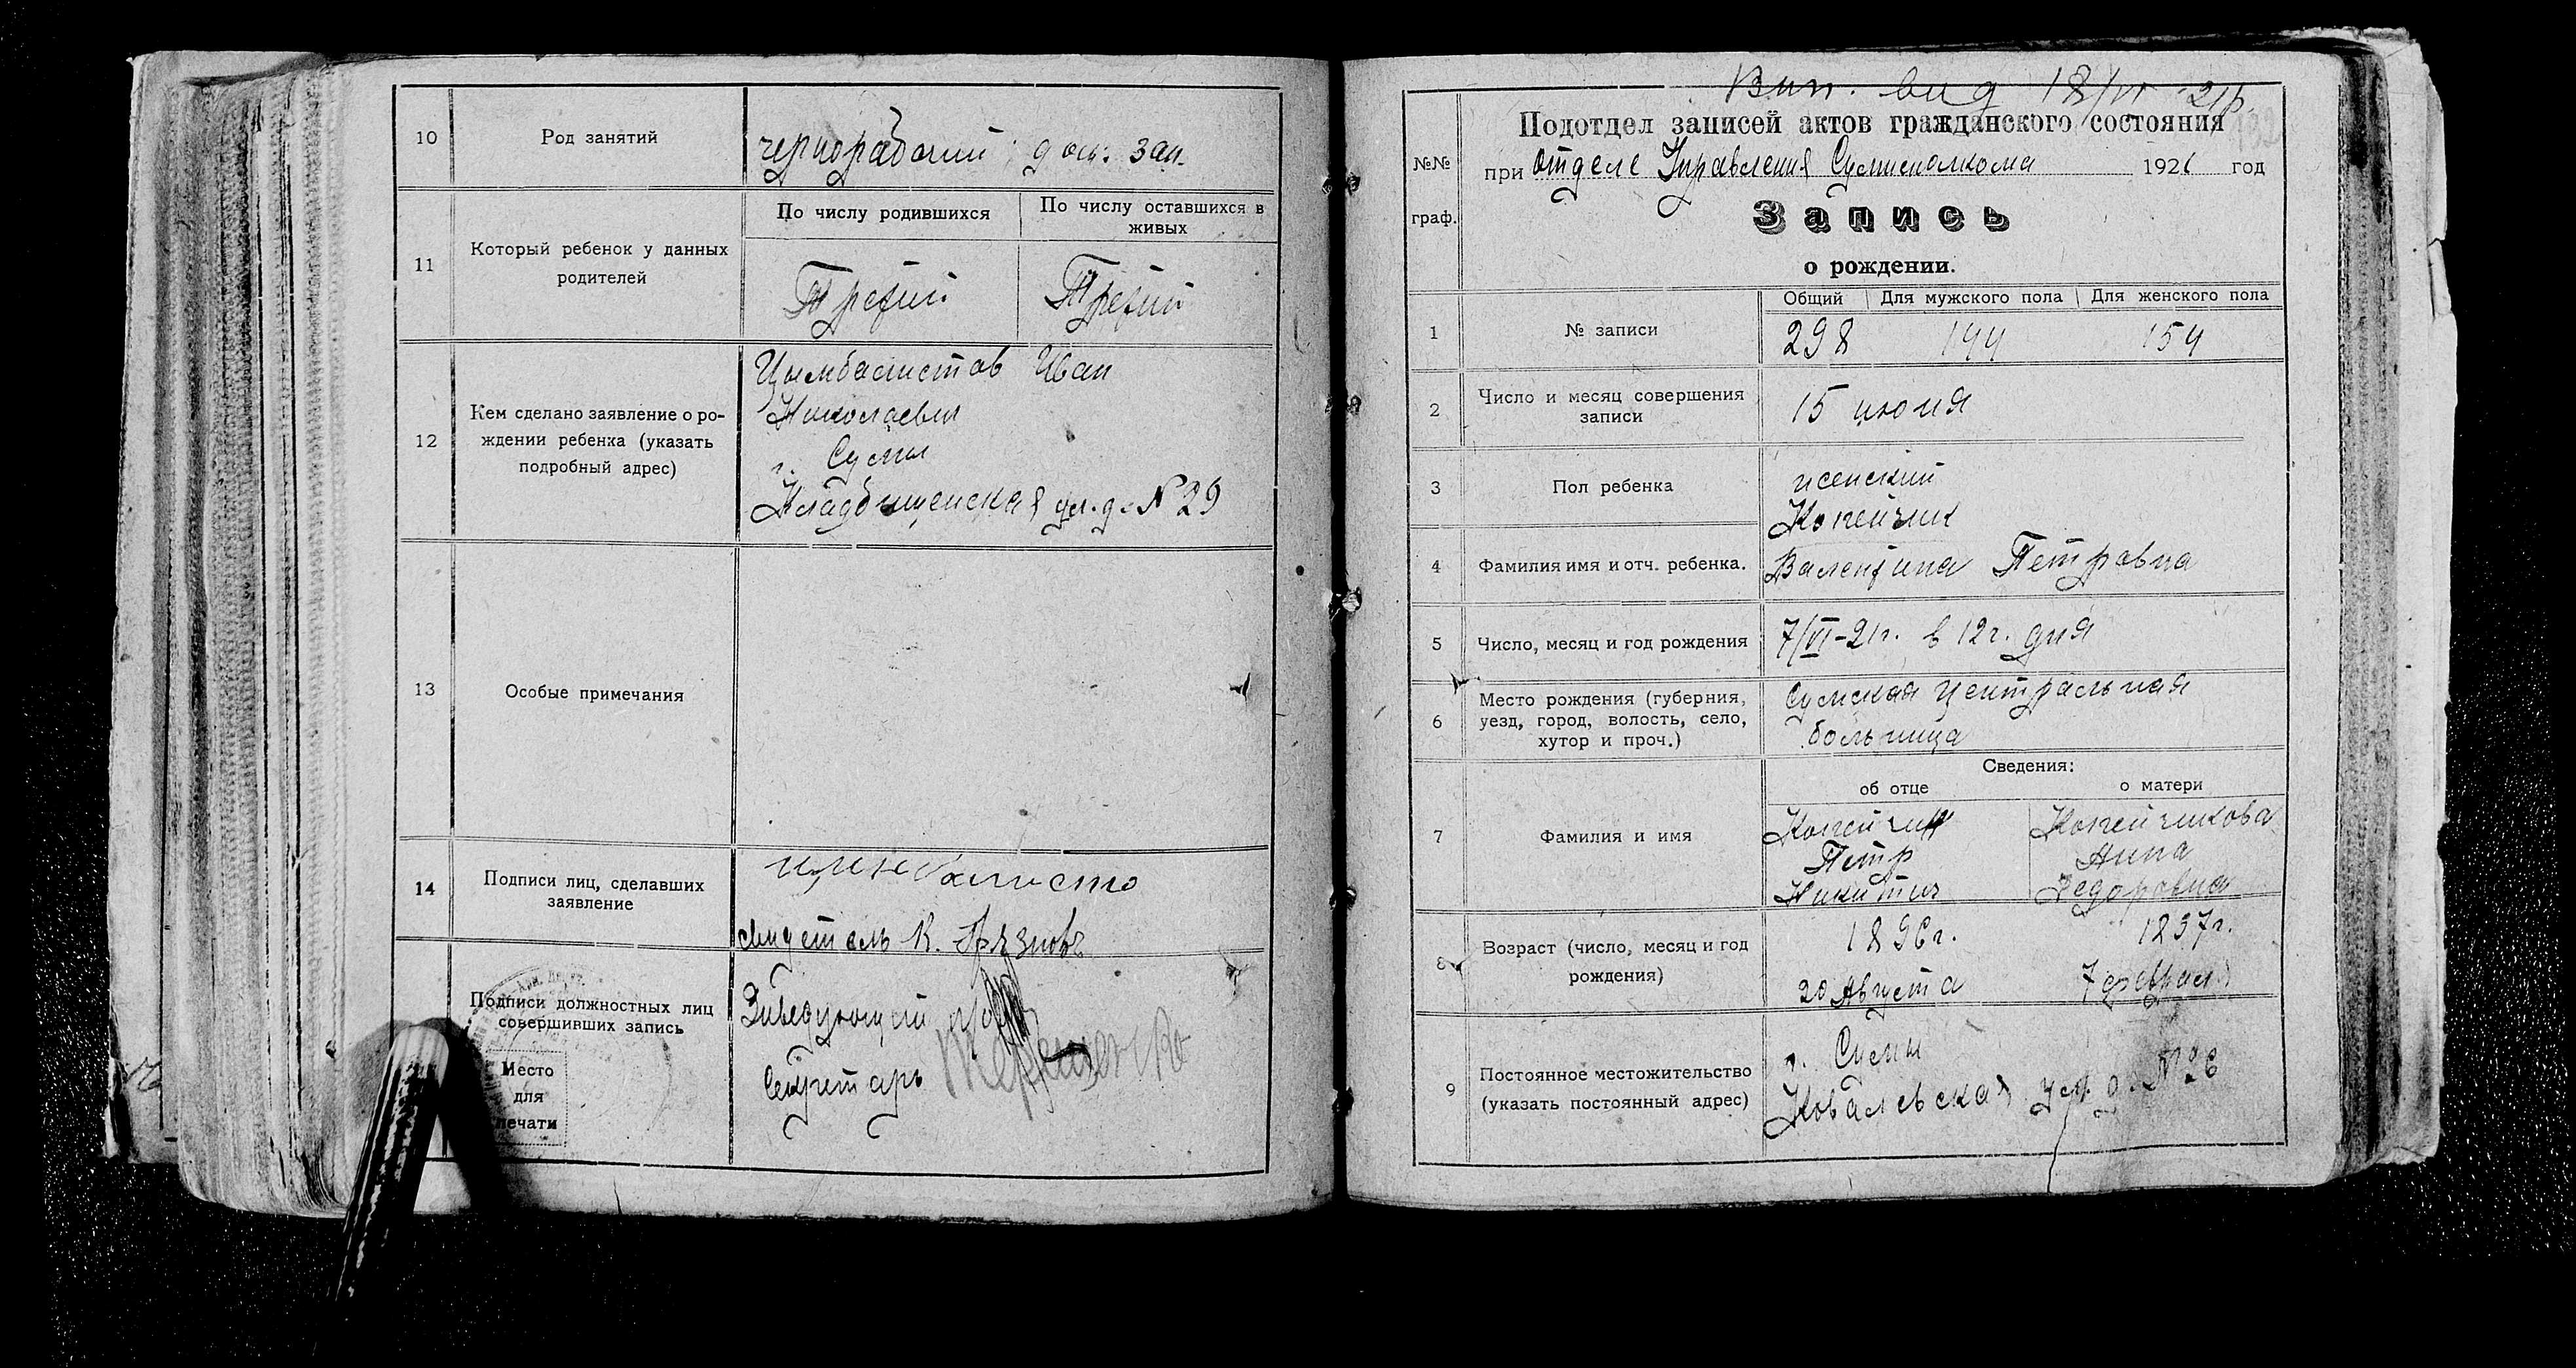 10
Род занятий
чернорабочий; дом. зан.
11
Который ребенок у данных
родителей
По числу родившихся
По числу оставшихся в
живых
Третий
Третий
12
Кем сделано заявление о ро-
ждении ребенка (указать
подробный адрес)
Цымбалистов Иван
Николаевич
г. Сумы
Кладбищенская ул. д. №29
13
Особые примечания
14
Подписи лиц, сделавших
заявление
свидетель К.
Подписи должностных лиц
совершивших запись
Место
для
печати
Заведующий
Секретарь
Вип. вид 18/VI -21р.
№№
граф.
Подотдел записей актов гражданского состояния
при отделе Управления Сумисполкома 1921 год
Запись
о рождении.
1
№ записи
Общий
Для мужского пола
Для женского пола
298
144
154
2
Число и месяц совершения
записи
15 июня
3
Пол ребенка
женский
4
Фамилия имя и отч. ребенка.
Копейчик
Валентина Петровна
5
Число, месяц и год рождения
7/VI-21г. в 12ч. дня
6
Место рождения (губерния,
уезд, город, волость, село,
хутор и проч.)
Сумская Центральная
больница
7
Фамилия и имя
Сведения:
об отце
о матери
Копейчик
Петр
Никитич
Копейчикова
Анна
Федоровна
8
Возраст (число, месяц и год
рождения)
1896г.
20 Августа
1897г.
7 февраля
9
Постоянное местожительство
(указать постоянный адрес)
г. Сумы
Ковалевская ул. д. №26